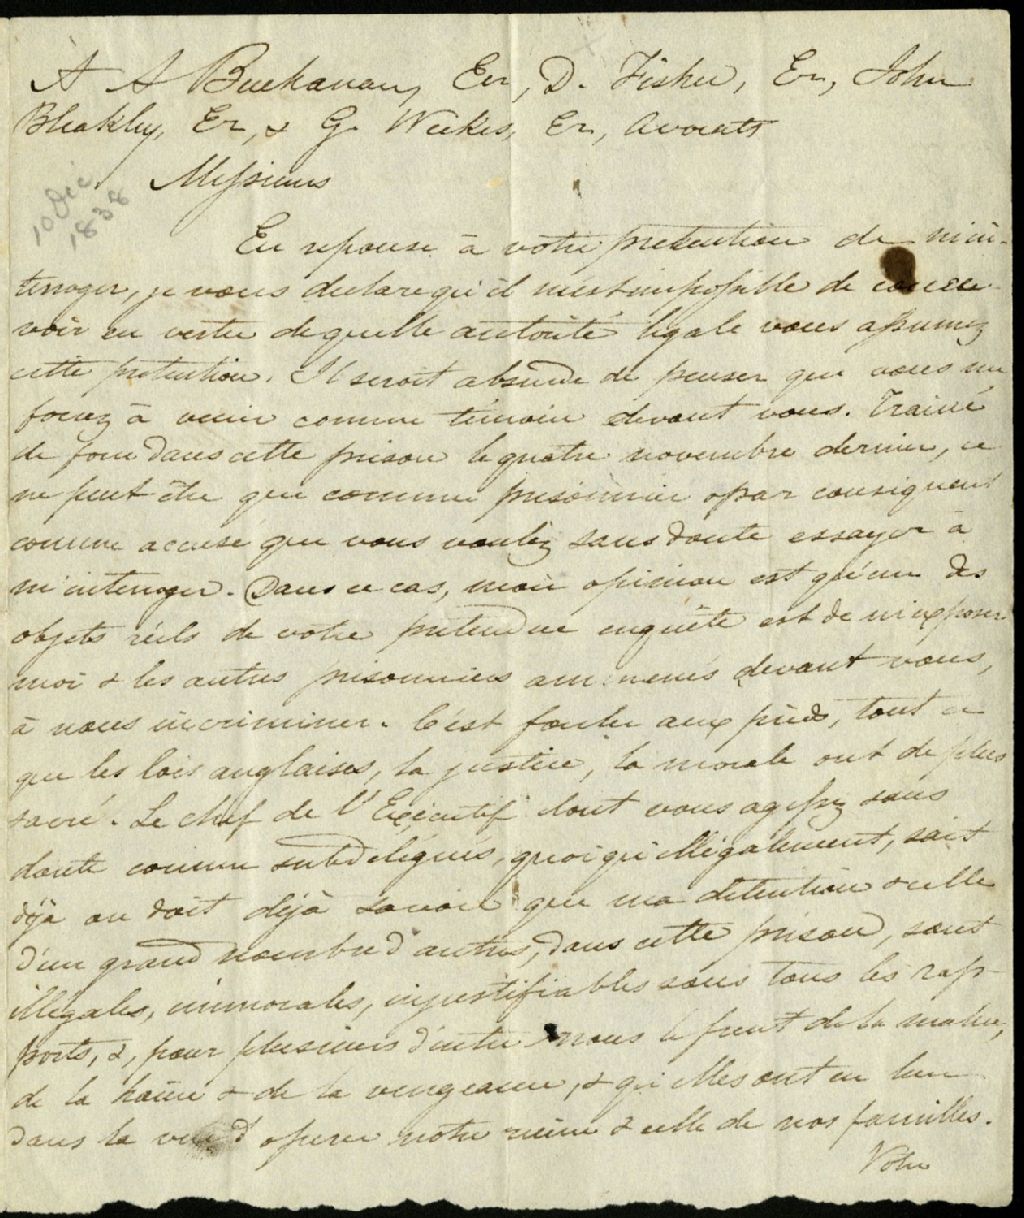 A A Buchanan, Ecr, D. Fisher, Ecr, John
Bleakley, Ecr, & G. Weekes, Ecr, Avocats
10 Dec
1838
Messieurs
En reponse à votre pretention de m'in-
terroger, je vous declare qu'il m'est impossible de conce-
voir en vertu de quelle autorité légale vous assumez
cette pretention. Il seroit absurde de penser que vous me
forcez à venir comme témoin devant vous. Trainé
de force dans cette prison le quatre novembre dernier, ce
ne peut être que comme prisonnier & par consequent
comme accusé que vous voulez sans doute essayer à
m'interroger. Dans ce cas, mon opinion est qu'un des
objets réels de votre prétendue enquête est de m'exposer
moi & les autres prisonniers ammenés devant vous,
à nous incriminer. C'est fouler aux pieds, tout ce
que les lois anglaises, la justice, la morale ont de plus
sacré. Le chef de l'Exécutif dont vous agissez sans
doute comme subdélégués, quoiqu'illégalement, sait
déjà ou doit déjà savoir que ma détention & celle
d'un grand nombre d'autres, dans cette prison, sont
illégales, immorales, injustifiables sous tous les rap-
ports, &, pour plusieurs d'entre nous le fruit de la malice,
de la haine & de la vengeance, & qu'elles ont eu lieu
dans la vue d'operer notre ruine & celle de nos familles.
Votre